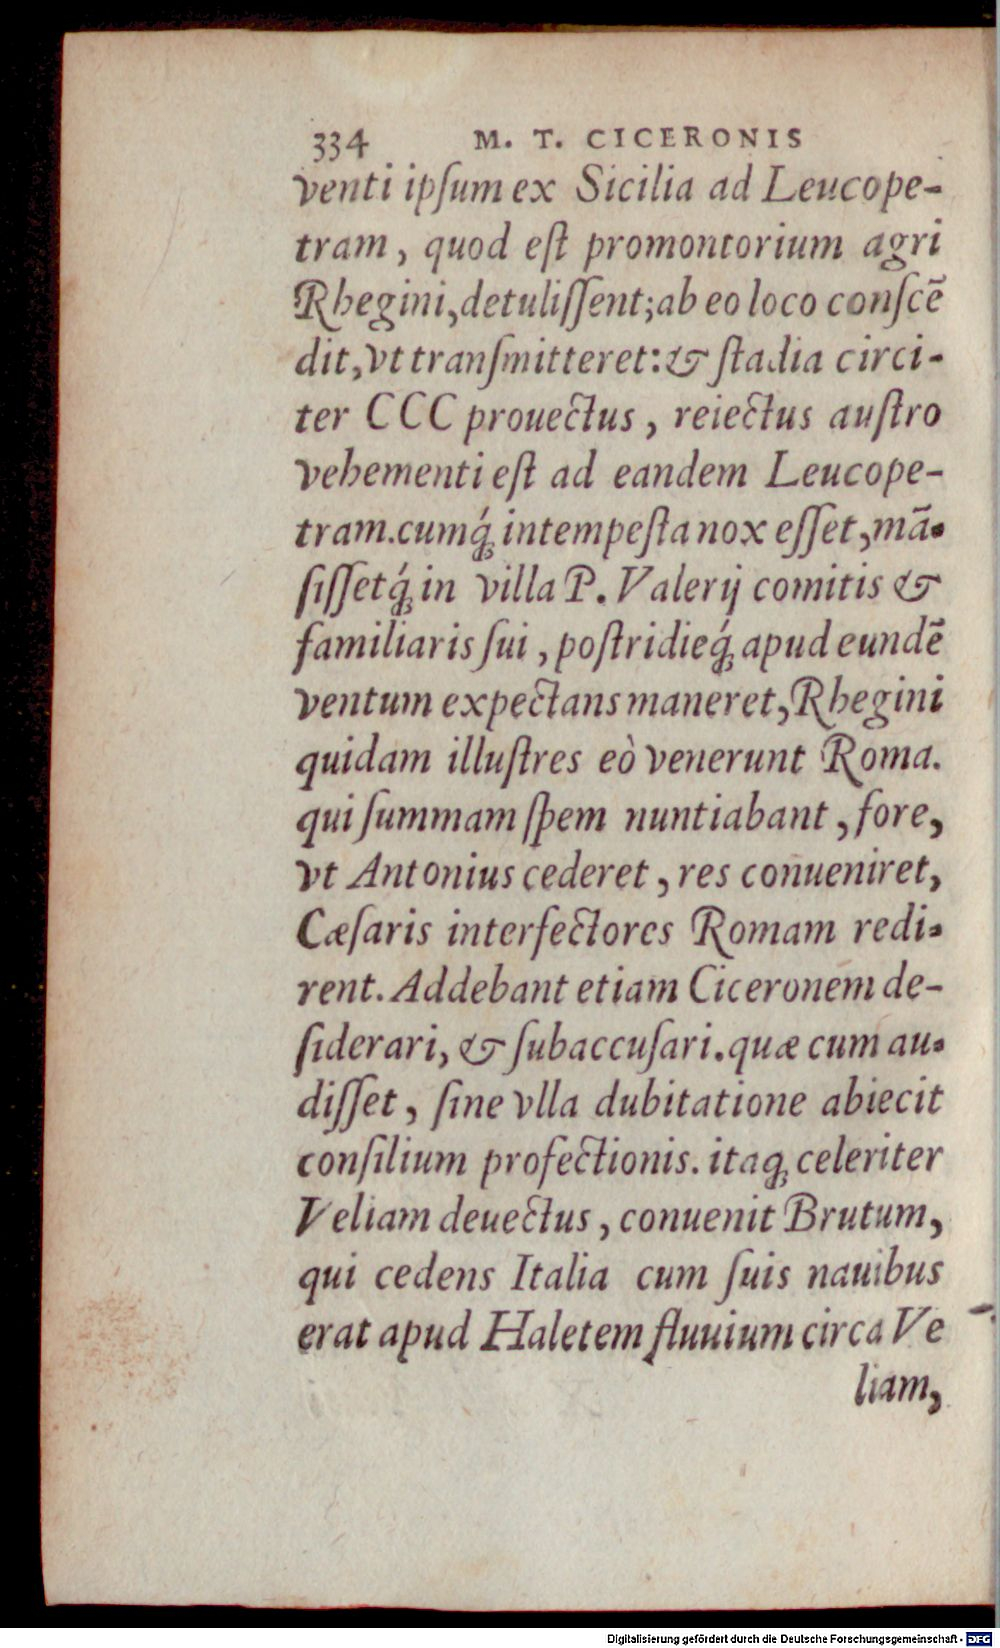 334 M. T. CICERONIS
venti ipſum ex Sicilia ad Leucope-
tram, quod eſt promontorium agri
Rhegini, detuliſſent; ab eo loco conſcē
dit, vt tranſmitteret: & ſtadia circi-
ter CCC prouectus, reiectus auſtro
vehementi eſt ad eandem Leucope-
tram. cumq́; intempeſta nox eſſet, mā-
ſiſſetq́; in villa P. Valerij comitis &
familiaris ſui, poſtridieq́; apud eundē
ventum expectans maneret, Rhegini
quidam illuſtres eò venerunt Roma.
qui ſummam ſpem nuntiabant, fore,
vt Antonius cederet, res conueniret,
Cæſaris interfectores Romam redi-
rent. Addebant etiam Ciceronem de-
ſiderari, & ſubaccuſari. quæ cum au-
diſſet, ſine vlla dubitatione abiecit
conſilium profectionis. itaq; celeriter
Veliam deuectus, conuenit Brutum,
qui cedens Italia cum ſuis nauibus
erat apud Haletem fluuium circa Ve
liam,
Digitalisierung gefördert durch die Deutsche Forschungsgemeinschaft - DFG